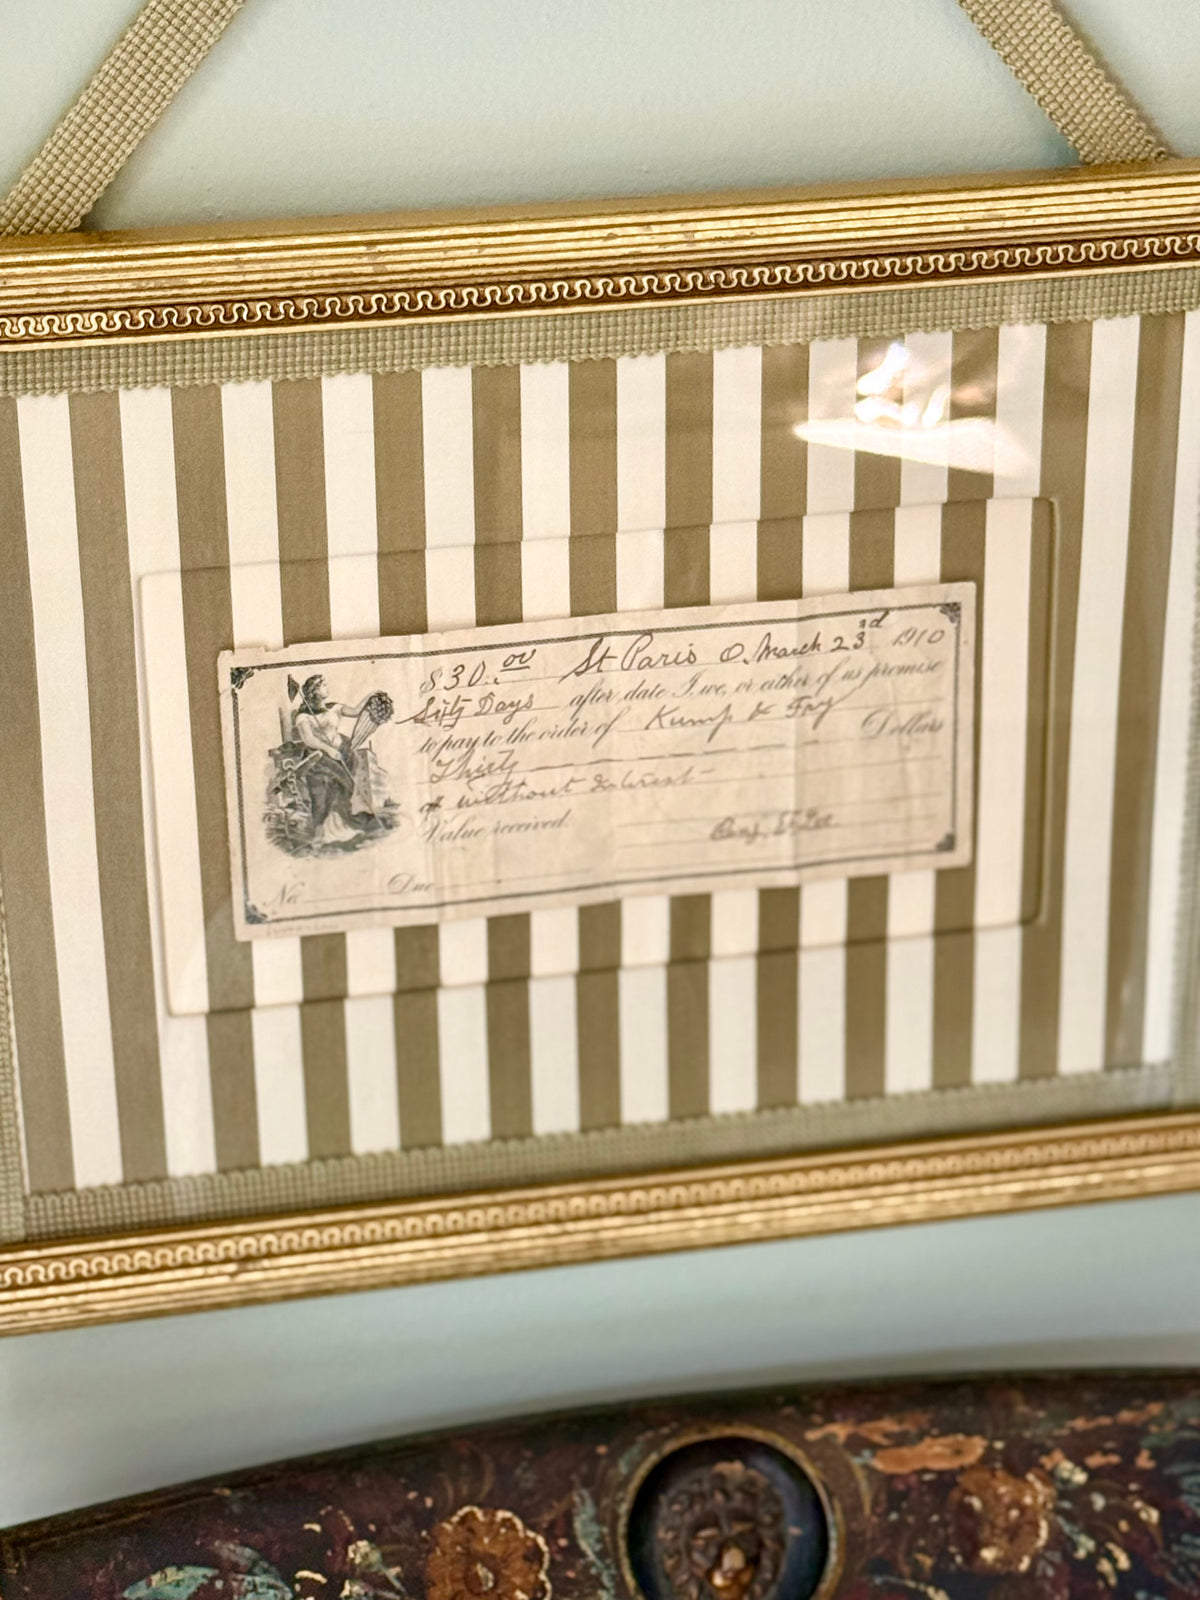 $30.00 St Paris O. March 23rd 1910
Sixty Days after date I, we, or either of us promise
to pay to the order of Kump & Fry
Thirty Dollars
at without interest
Value received.
No. Due